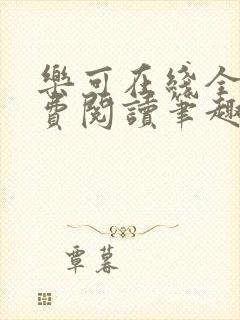 樂可在綫全
費閱讀筆趣
覃暮